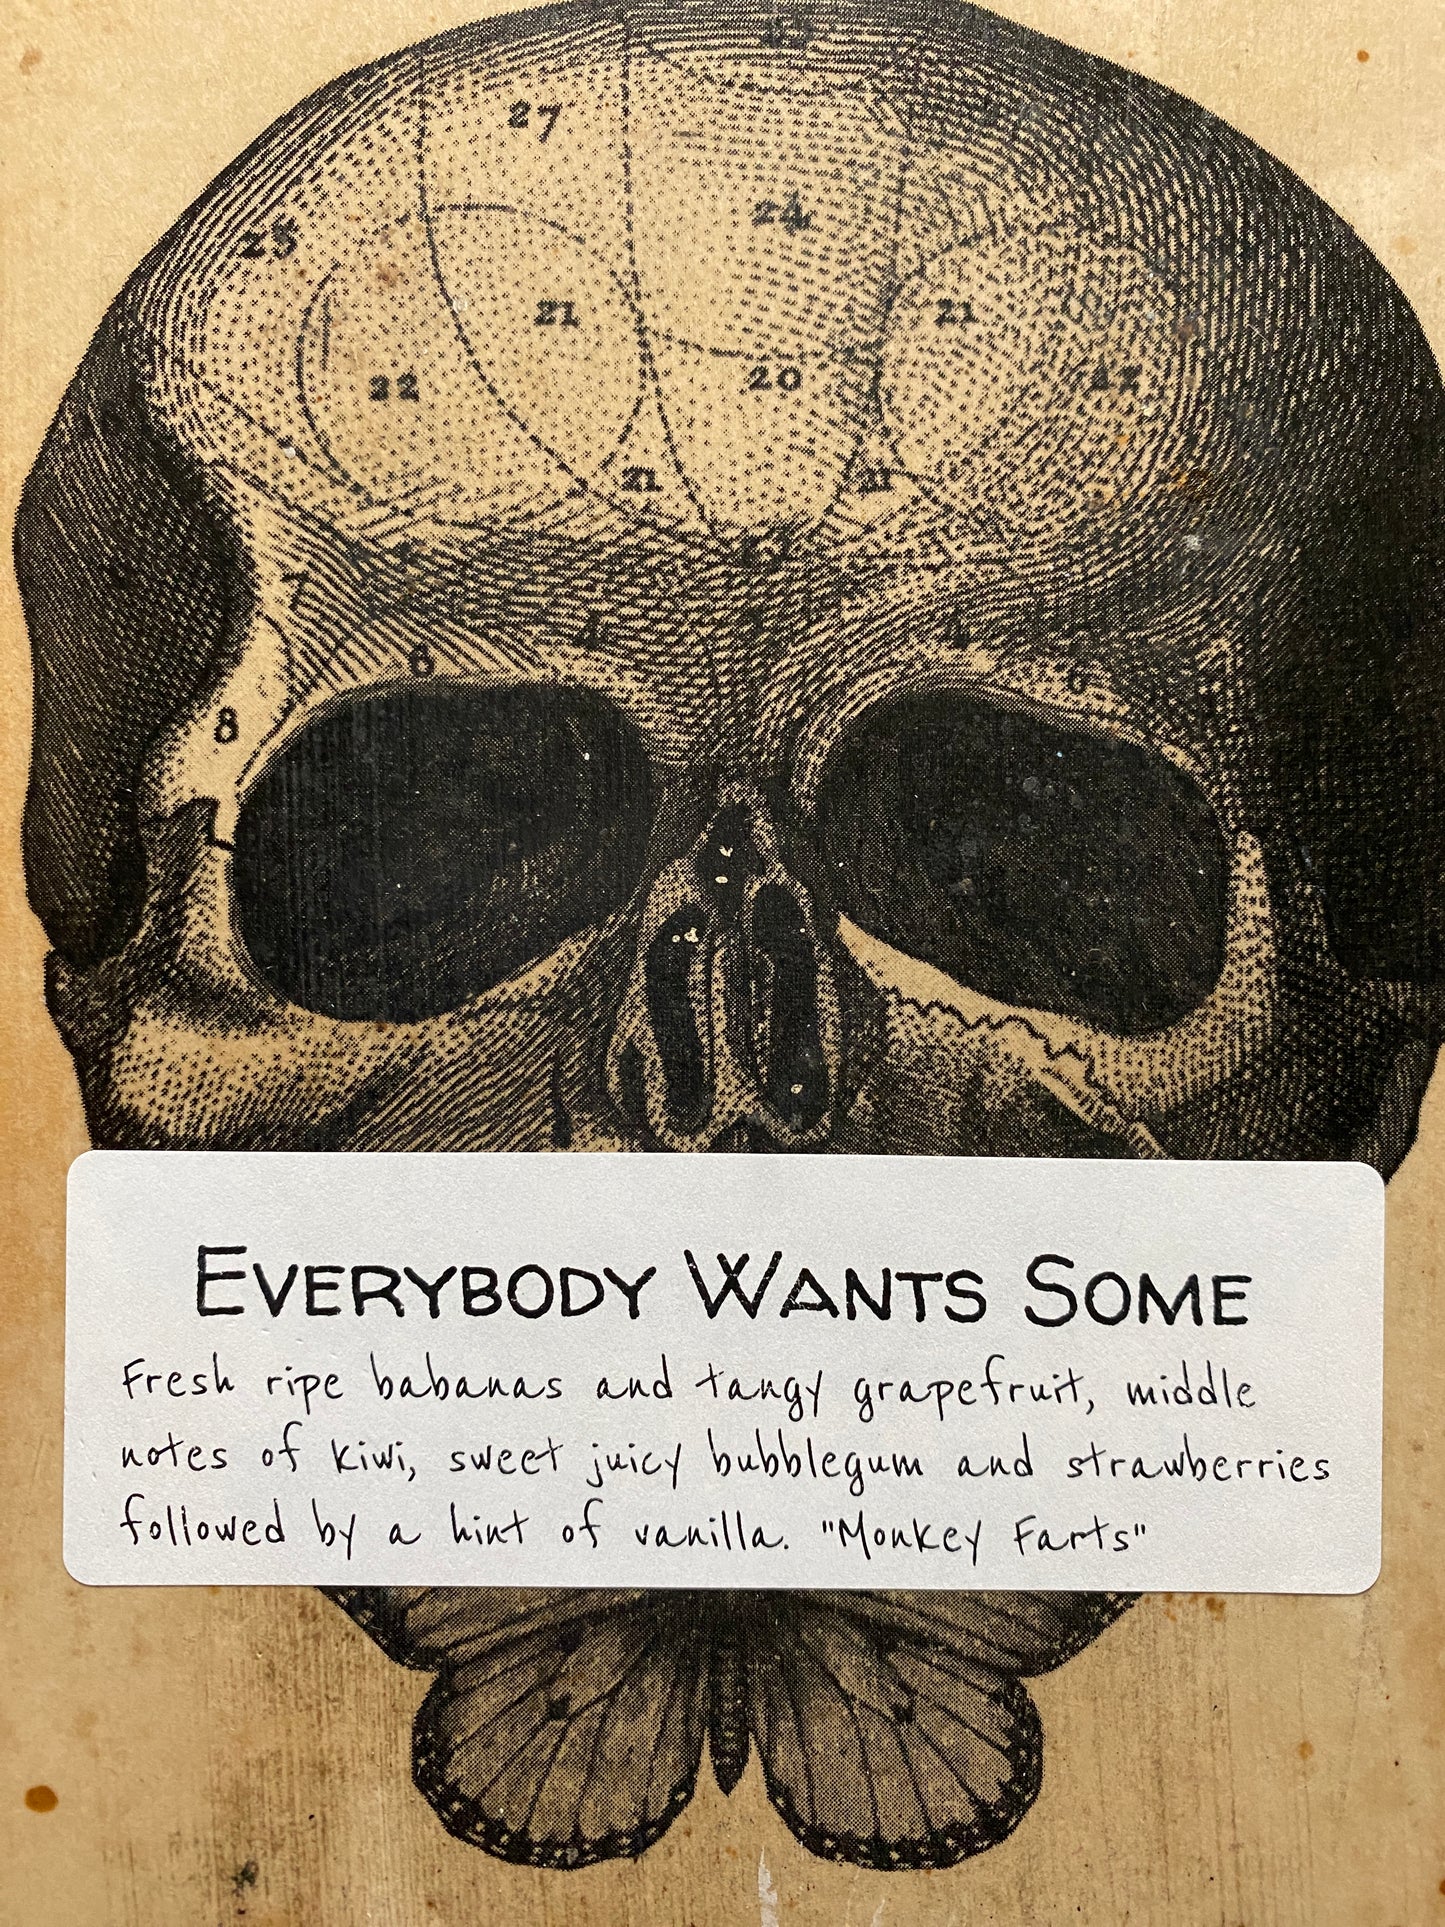 27
25
24
21
21
22
20
21
6
8
EVERYBODY WANTS SOME
Fresh ripe babanas and tangy grapefruit, middle
notes of kiwi, sweet juicy bubblegum and strawberries
followed by a hint of vanilla. "Monkey Farts"